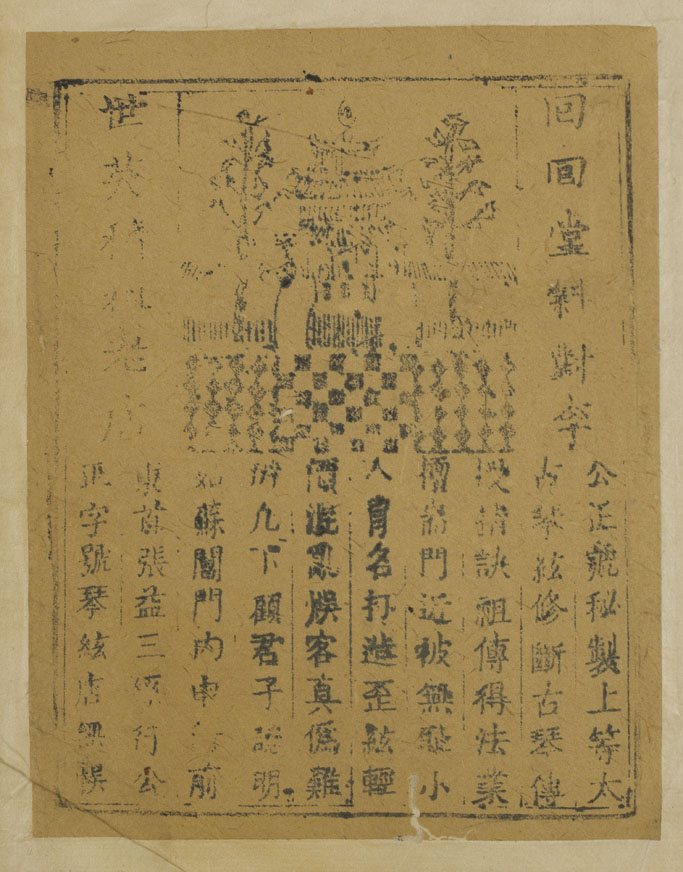 回回堂斜對李
公正號秘製上等太
古琴絃修斷古琴傳
授清訣祖傳得法業
擅耑門近被無恥小
人冒名打造歪絃輕
價混亂悞客真僞難
辨凡下顧君子認明
姑蘇閶門內申 前
東首張益三 行公
正字號琴絃店無悞
世英 老店